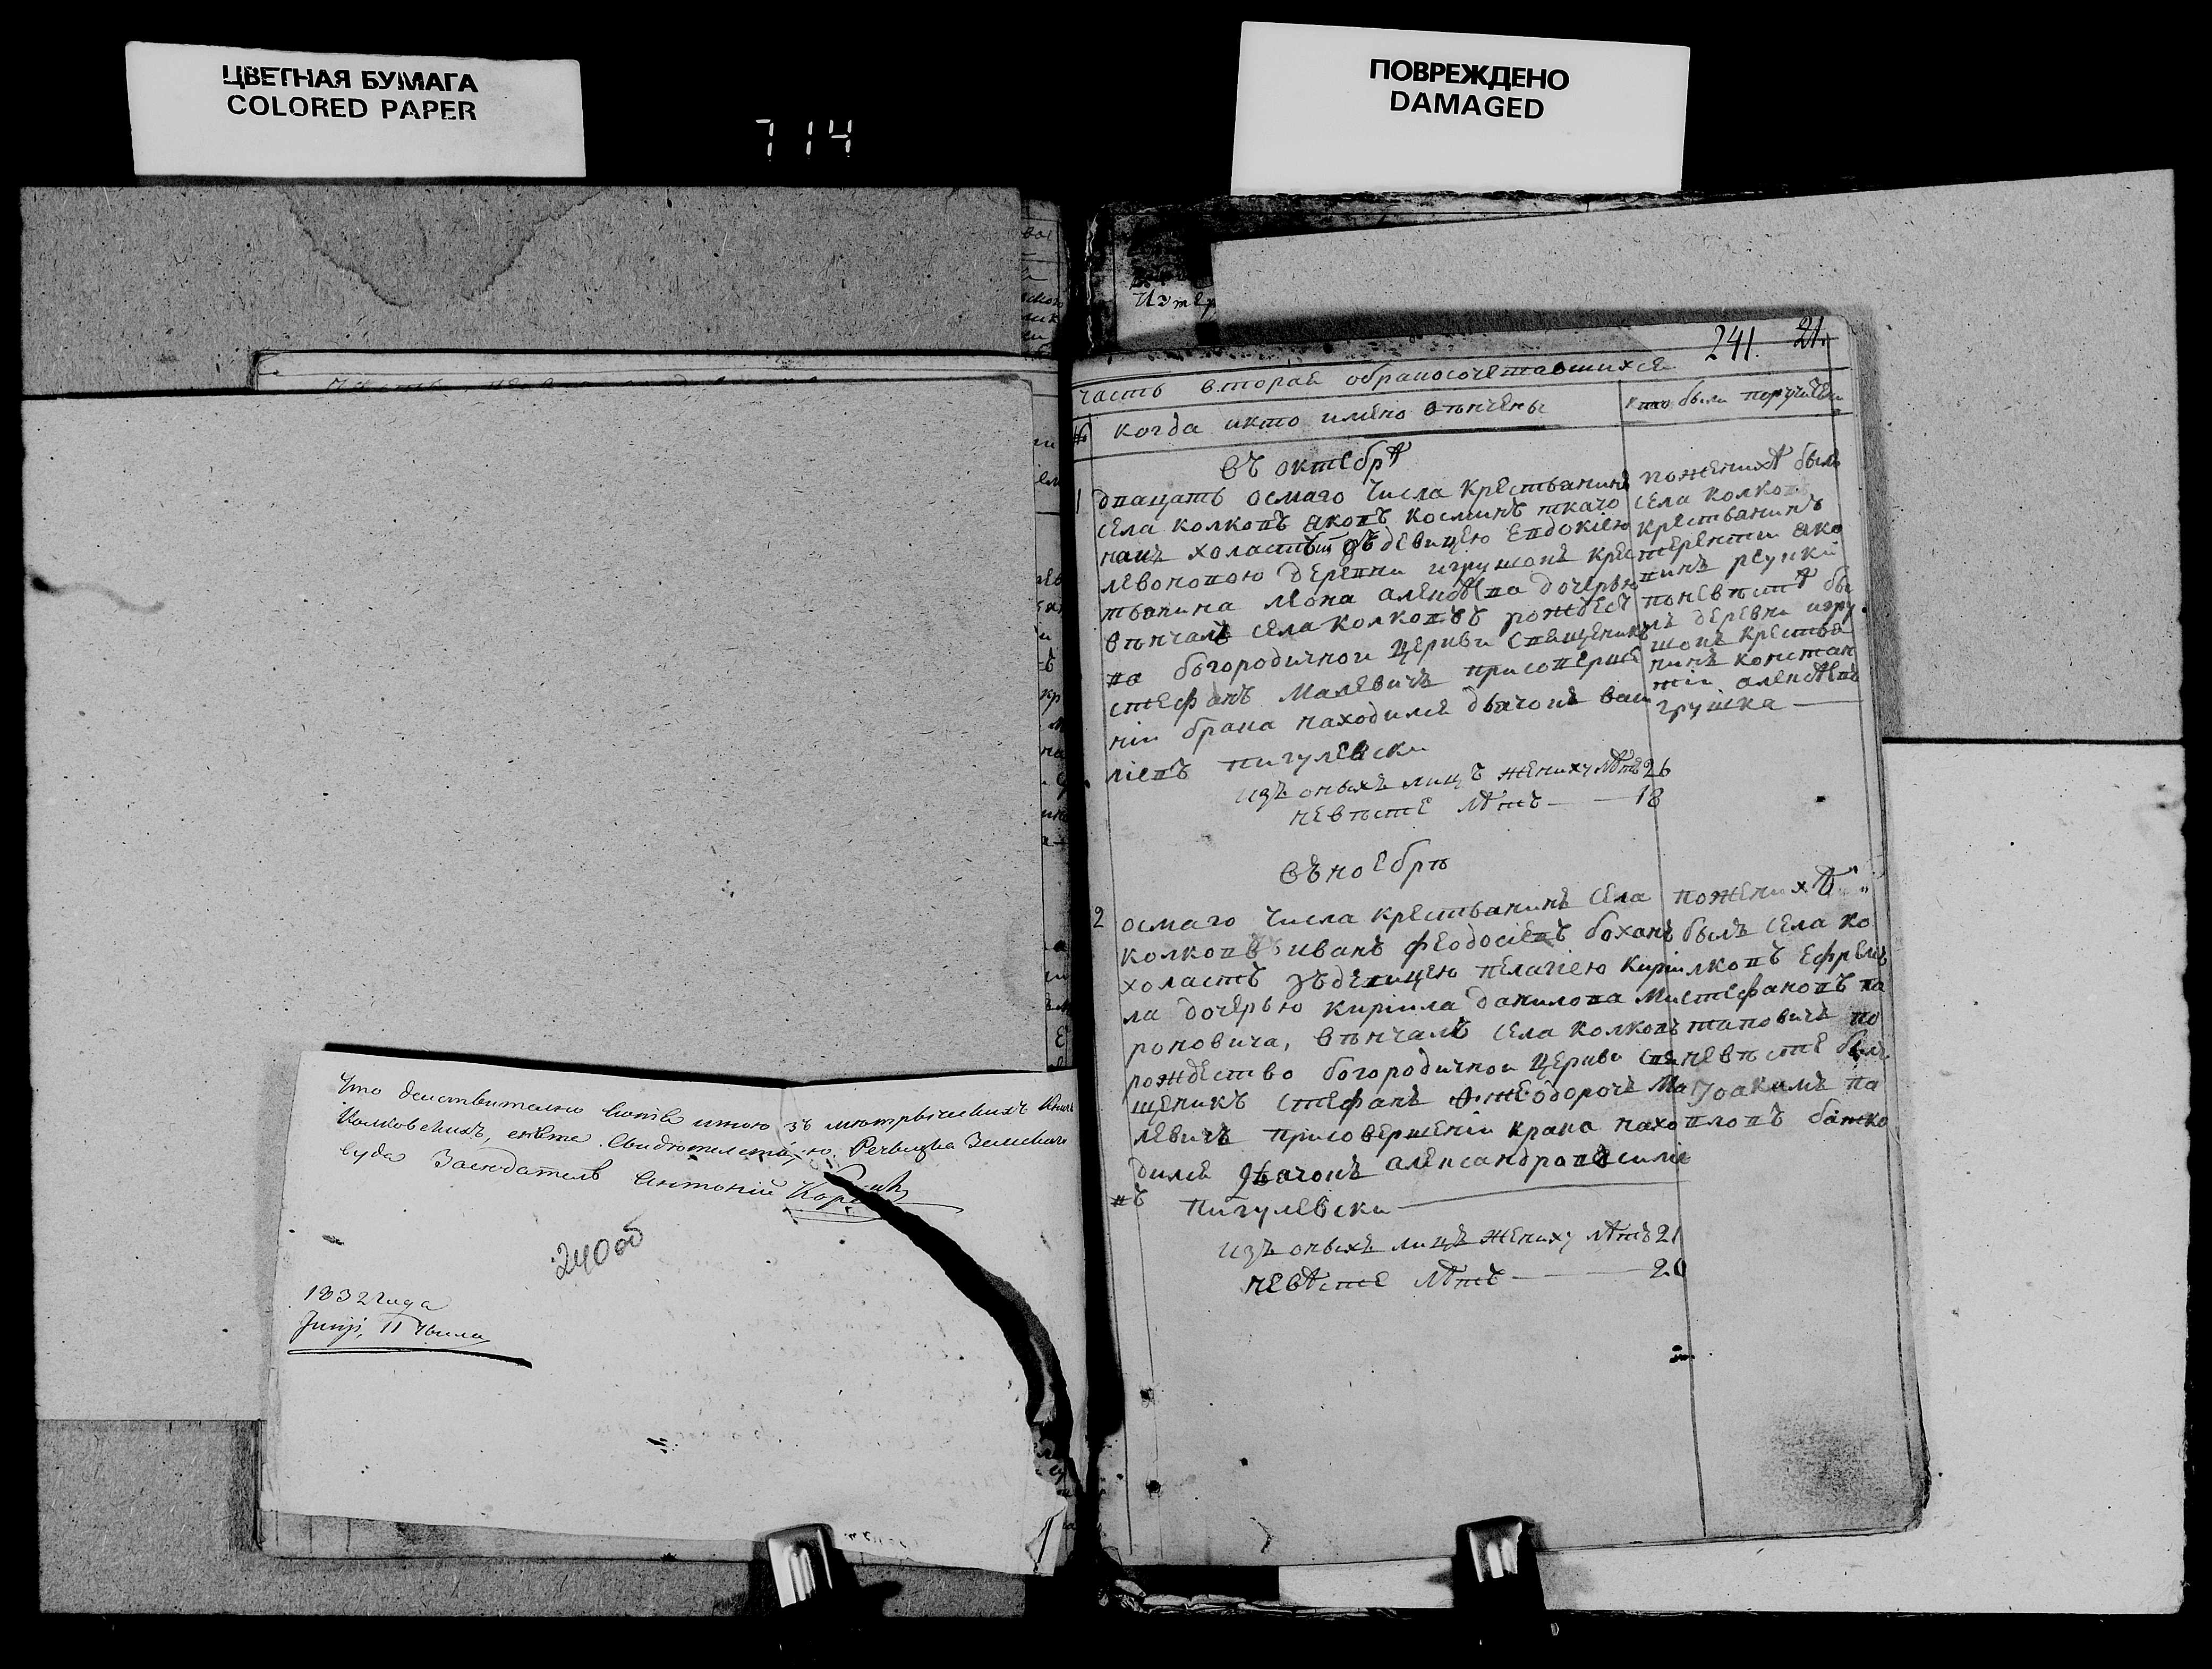 ЦВЕТНАЯ БУМАГА
COLORED PAPER
714
ПОВРЕЖДЕНО
DAMAGED
241. 21.
часть вторая обракосочетавшихся
№ когда икто имено венчены
кто были поручители
въ октебрѣ
1 двацать осмаго числа крестьянинъ
села колковъ яковъ косминъ ткачо
нанъ холастый зъ девицею Евдокіею
левоновою деревни игрушокъ крес
тьянина леона алексѣева дочерью
вѣнчалъ села колковъ рождест
во богородичной церкви священикъ
стефанъ малевичъ присоверше
ніи брака находился дьячокъ васи
ліевъ пигулевски
изъ оныхъ лицъ жениху лѣтъ 26
невѣсте лѣтъ 18
поженихѣ былъ
села колковъ
крестьянинъ
терентіи яко
поневѣстѣ бы
лъ деревни игру
шокъ крестья
нинъ констан
тіи алексѣевъ
грушка
въ ноебрѣ
2 осмаго числа крестьянинъ села
колковъ иванъ феодосіевъ боханъ
холастъ зъ девицею пелагіею кирил
ла дочерью кирила данилова ми
роновича, вѣнчалъ села колковъ
рождество богородичной церкви свя
щеникъ стефанъ феодоровъ ма
левичъ присовершеніи брака нахо
дился дьячокъ александро
въ пигулевски
изъ оныхъ лицъ жениху лѣтъ 21
невѣсте лѣтъ 20
поженихѣ
былъ села ко
лковъ Ефремъ
стефановъ па
таповичъ по
невѣсте былъ
Іоакимъ па
вловъ
Что действително
Колковскихъ, Речицкаго Земскаго
Суда Заседатель Антоній
240 об
1832 года
Junji, 11 числа